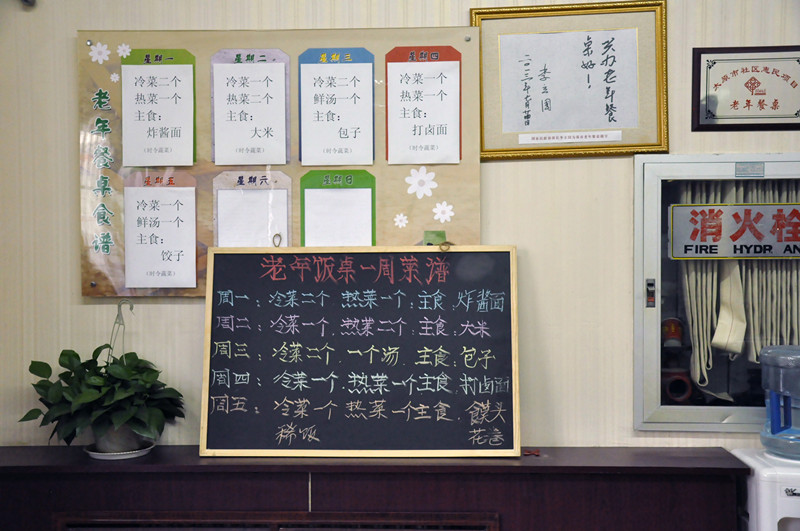 老年餐桌食谱
星期一
冷菜二个
热菜一个
主食:
炸酱面
(时令蔬菜)
星期二
冷菜一个
热菜二个
主食:
大米
(时令蔬菜)
星期三
冷菜二个
鲜汤一个
主食:
包子
(时令蔬菜)
星期四
冷菜一个
热菜一个
主食:
打卤面
(时令蔬菜)
星期五
冷菜一个
鲜汤一个
主食:
饺子
(时令蔬菜)
星期六
星期日
老年饭桌一周菜谱
周一:冷菜二个 热菜一个:主食:炸酱面
周二:冷菜一个、热菜二个:主食:大米
周三:冷菜二个、一个汤 主食:包子
周四:冷菜一个、热菜一个主食:打卤面
周五:冷菜一个 热菜一个主食、馒头
稀饭 花卷
老年餐
桌好!
李立国
社区惠民项目
老年餐桌
消火栓
FIRE HYDRANT